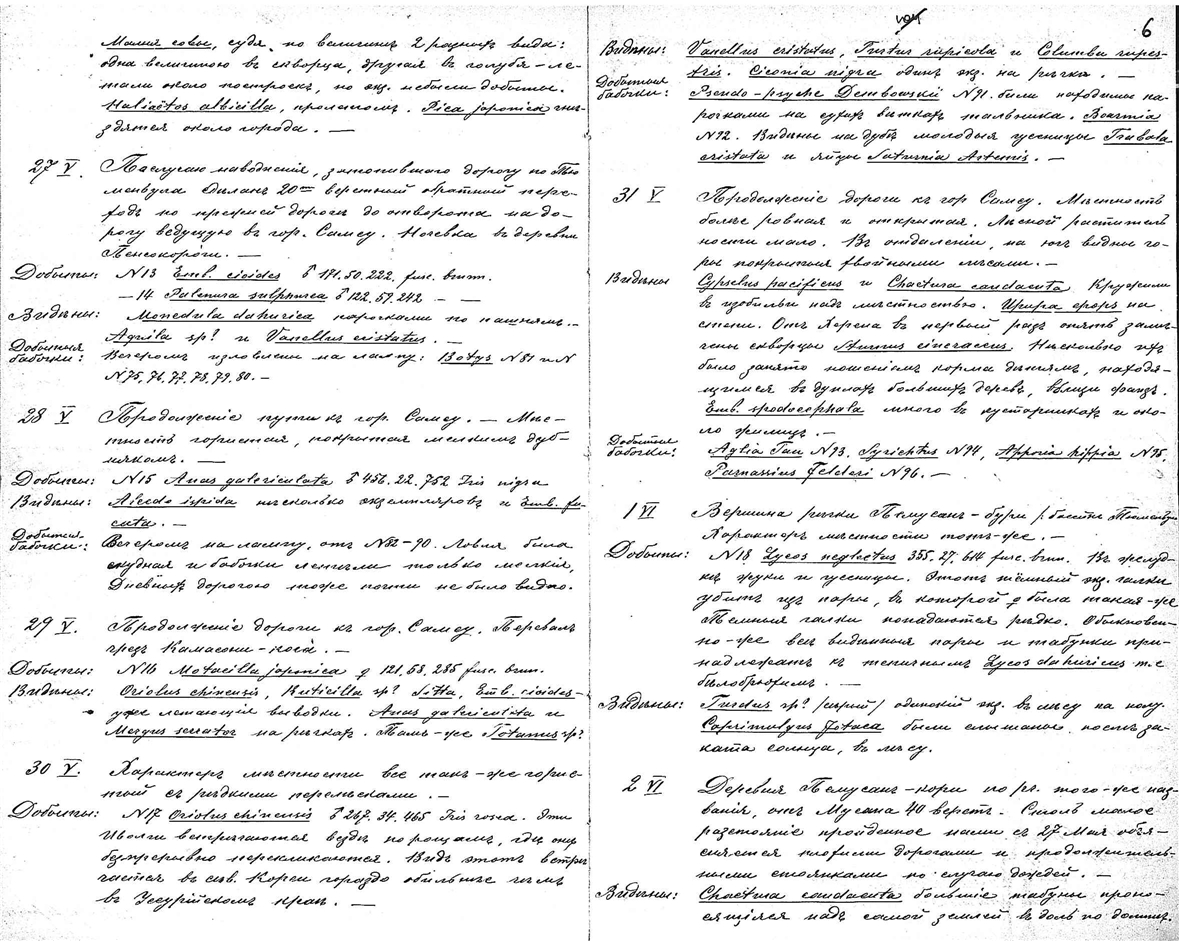 Малыя совы, судя по величинѣ 2 разныхъ вида:
одна величиною въ скворца, другая въ голубя – ле-
тали около построекъ, но экз. небыли добыты.
Haliaëtos albicilla, пролетомъ. Pica japonica гнѣ-
здятся около города. —
27 V.
По случаю наводненія, затопившаго дорогу по Тю-
менъула дѣланъ 20ти верстный обратный пере-
ходъ по прежней дорогѣ до отворота на до-
рогу ведущую въ гор. Самсу. Ночевка въ деревни
Пенсокороги. —
Добыты: N13 Emb. cioides ♂ 171. 50. 222. fusc. brun.
— 14 Palenura sulphurea ♂ 122. 59. 242 — —
Видѣны: Monedula dahurica парочками по пашнямъ. —
Aquila sp? и Vanellus cristatus. —
Добытыя бабочки: Вечеромъ изловлены на лампу: Botys N81 и N
N75, 76, 77, 78, 79, 80. —
28 V
Продолженіе пути къ гор. Самсу. — Мѣс-
тность гористая, покрытая мелкимъ дуб-
някомъ. —
Добыты: N15 Anas galericulata ♂ 456. 22. 752 Iris nigra
Видѣны: Alcedo ispida нѣсколько экземпляровъ и Emb. fu-
cata. —
Добытыя бабочки: Вечеромъ на лампу, отъ N82–90. Ловля была
скудная и бабочки летѣли только мелкія,
Дневныхъ дорогою тоже почти не было видно.
29 V.
Продолженіе дороги къ гор. Самсу. Перевалъ
чрезъ Камасони-
Добыты: N16 Motacilla japonica ♀ 121. 58. 285 fusc. brun.
Видѣны: Oriolus chinensis, Ruticilla sp? Sitta, Emb. cioides –
уже летающіе выводки. Anas galericulata и
Mergus serrator на рѣчкахъ. Тамъ-же Totanus sp?
30 V.
Характеръ мѣстности все такъ-же горис-
той съ рѣдкими перелѣсками. —
Добыты: N17 Oriolus chinensis ♂ 267. 34. 465 Iris rosea. Эти
Иволги встрѣчаются вездѣ по рощамъ, гдѣ они
безпрерывно перекликаются. Видъ этотъ встрѣ-
чается въ сѣв. Кореи гораздо обильнѣе чѣмъ
въ Уссурійскомъ краѣ. —
6
Видѣны: Vanellus cristatus, Turtur rupicola и Columba rupes-
tris. Ciconia nigra одинъ экз. на рѣчкѣ. —
Добытыя бабочки: Pseudo-psyche Dembowskii N91. были находимы па-
рочками на сухихъ вѣткахъ тальника. Boarmia
N92. Видѣны на дубѣ молодыя гусеницы Trabala
cristata и яйцы Saturnia Artemis. —
31 V
Продолженіе дороги къ гор. Самсу. Мѣстность
болѣе ровная и открытая. Лѣсной раститель
ности мало. Въ отдаленіи, на югѣ видны го-
ры покрытыя хвойными лѣсами. —
Видѣны Cypselus pacificus и Chaetura caudacuta. Кружили
въ изобильи надъ мѣстностью. Upupa epops на
степи. Отъ Херена въ первый разъ опять замѣ-
чены скворцы Sturnus cineraceus. Нѣсколько ихъ
было занято ношеніемъ корма дѣтямъ, находя-
щимся въ дуплахъ большихъ деревъ, вблизи фанзъ.
Emb. spodocephala много въ кустарникахъ и око-
ло жилищъ. —
Добытыя бабочки: Aglia Tau N93, Syrichtus N94, Apporia hippia N95.
Parnassius Felderi N96. —
1 VI
Вершина рѣчки Пемусанъ-бури
Характеръ мѣстности тотъ-же. —
Добыты: N18 Lycos neglectus 355. 27. 614 fusc. brun. Въ желуд-
кѣ жуки и гусеницы. Этотъ тёмный экз. галки
убитъ изъ пары, въ которой ♀ была такая-же
Темныя галки попадаются рѣдко. Обыкновен-
но-же всѣ видѣнныя пары и табунки при-
надлежатъ къ типичнымъ Lycos dahuricus т.е
бѣлобрюхимъ. —
Видѣны: Turdus sp? /сѣрый/ одинокій экз. въ лѣсу на полу.
Caprimulgus Jotaca были слышаны послѣ за-
ката солнца, въ лѣсу.
2 VI
Деревня Пемусанъ-кори по рч. того-же наз-
ванія, отъ Мусана 40 верстъ. Столь малое
разстояніе пройденное нами съ 27 Мая объя-
сняется плохими дорогами и продолжитель-
ными стоянками по случаю дождей. —
Видѣны: Chaetura caudacuta большіе табуны проно-
сящіяся надъ самой землей въ доль по долинѣ.